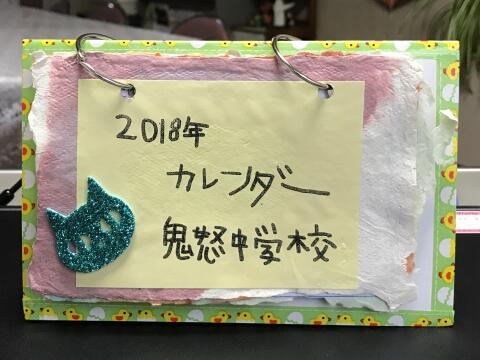 2018年
カレンダー
鬼怒中学校